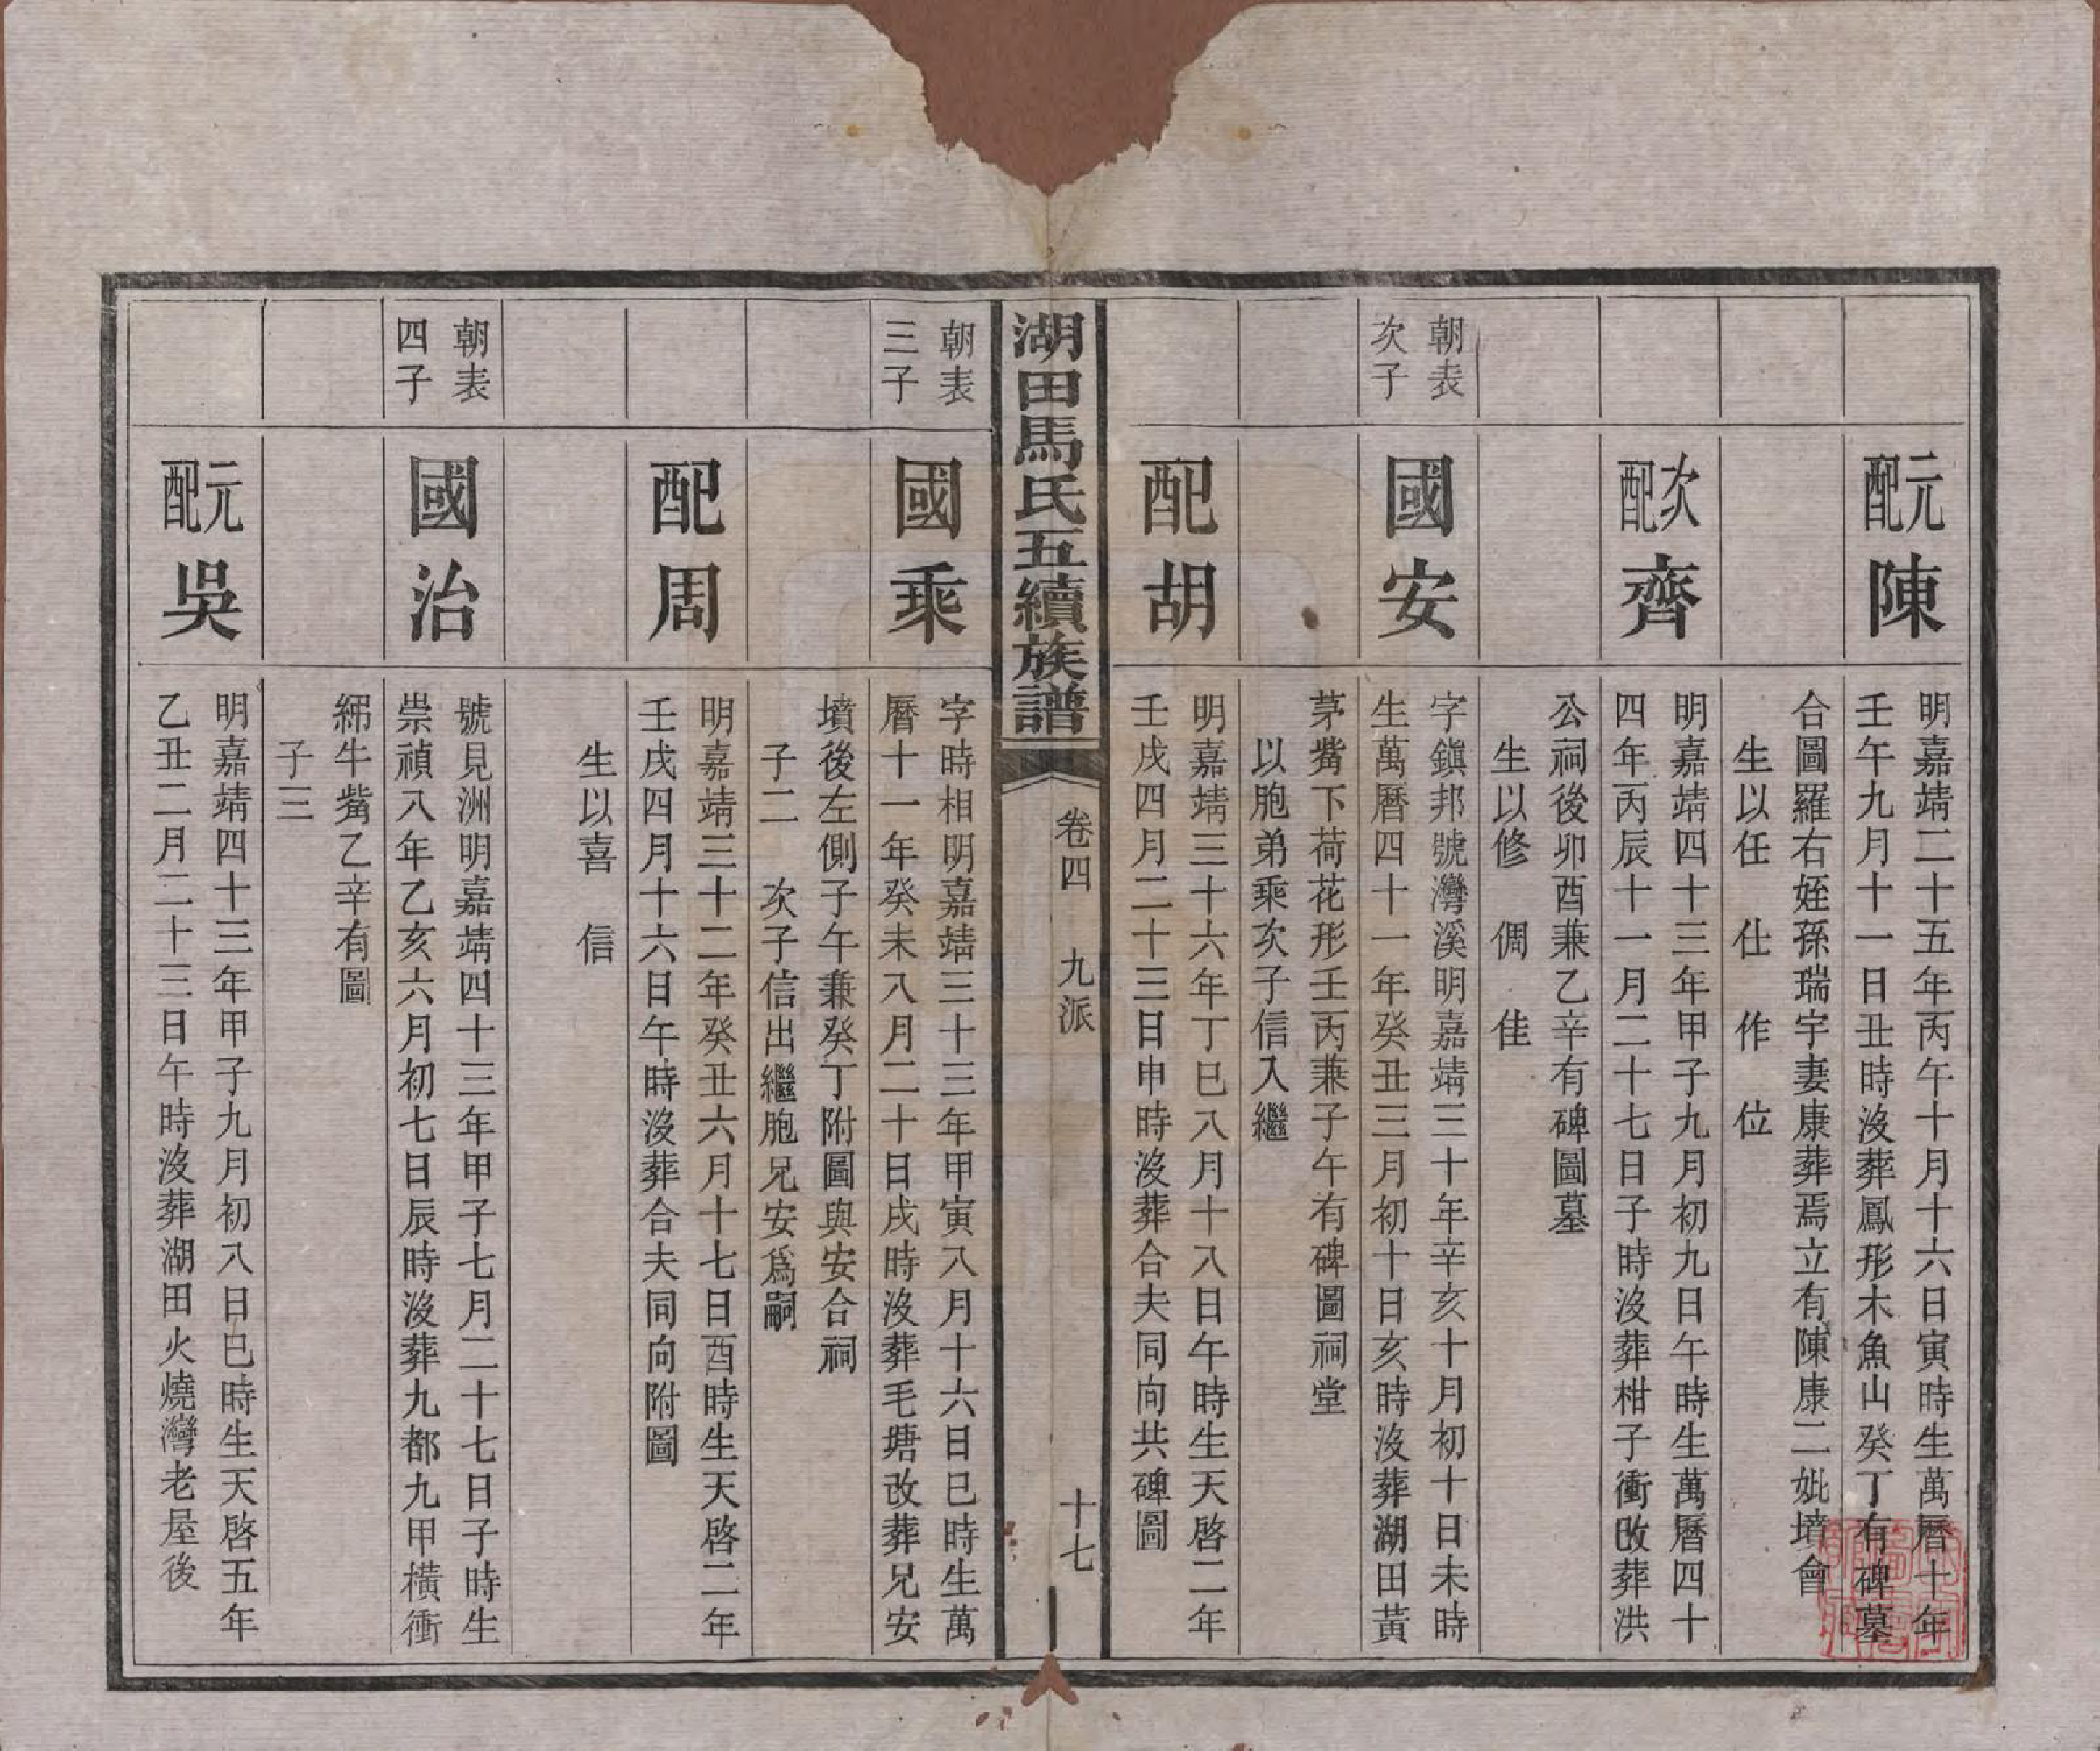 元配陳
明嘉靖二十五年丙午十月十六日寅時生萬曆十年
壬午九月十一日丑時沒葬鳳形木魚山癸丁有碑墓
合圖羅右姪孫瑞宇妻康葬焉立有陳康二妣墳會
生以任 仕 作 位
次配齊
明嘉靖四十三年甲子九月初九日午時生萬曆四十
四年丙辰十一月二十七日子時沒葬柑子衝改葬洪
公祠後卯酉兼乙辛有碑圖墓
生以修 倜 佳
朝表
次子
國安
字鎭邦號灣溪明嘉靖三十年辛亥十月初十日未時
生萬曆四十一年癸丑三月初十日亥時沒葬湖田黃
茅觜下荷花形壬丙兼子午有碑圖祠堂
以胞弟乘次子信入繼
配胡
明嘉靖三十六年丁巳八月十八日午時生天啓二年
壬戌四月二十三日申時沒葬合夫同向共碑圖
湖田馬氏五續族譜
卷四 九派
十七
朝表
三子
國乘
字時相明嘉靖三十三年甲寅八月十六日巳時生萬
曆十一年癸未八月二十日戌時沒葬毛塘改葬兄安
墳後左側子午兼癸丁附圖與安合祠
子二 次子信出繼胞兄安爲嗣
配周
明嘉靖三十二年癸丑六月十七日酉時生天啓二年
壬戌四月十六日午時沒葬合夫同向附圖
生以喜 信
朝表
四子
國治
號見洲明嘉靖四十三年甲子七月二十七日子時生
崇禎八年乙亥六月初七日辰時沒葬九都九甲橫衝
綿牛觜乙辛有圖
子三
元配吳
明嘉靖四十三年甲子九月初八日巳時生天啓五年
乙丑二月二十三日午時沒葬湖田火燒灣老屋後